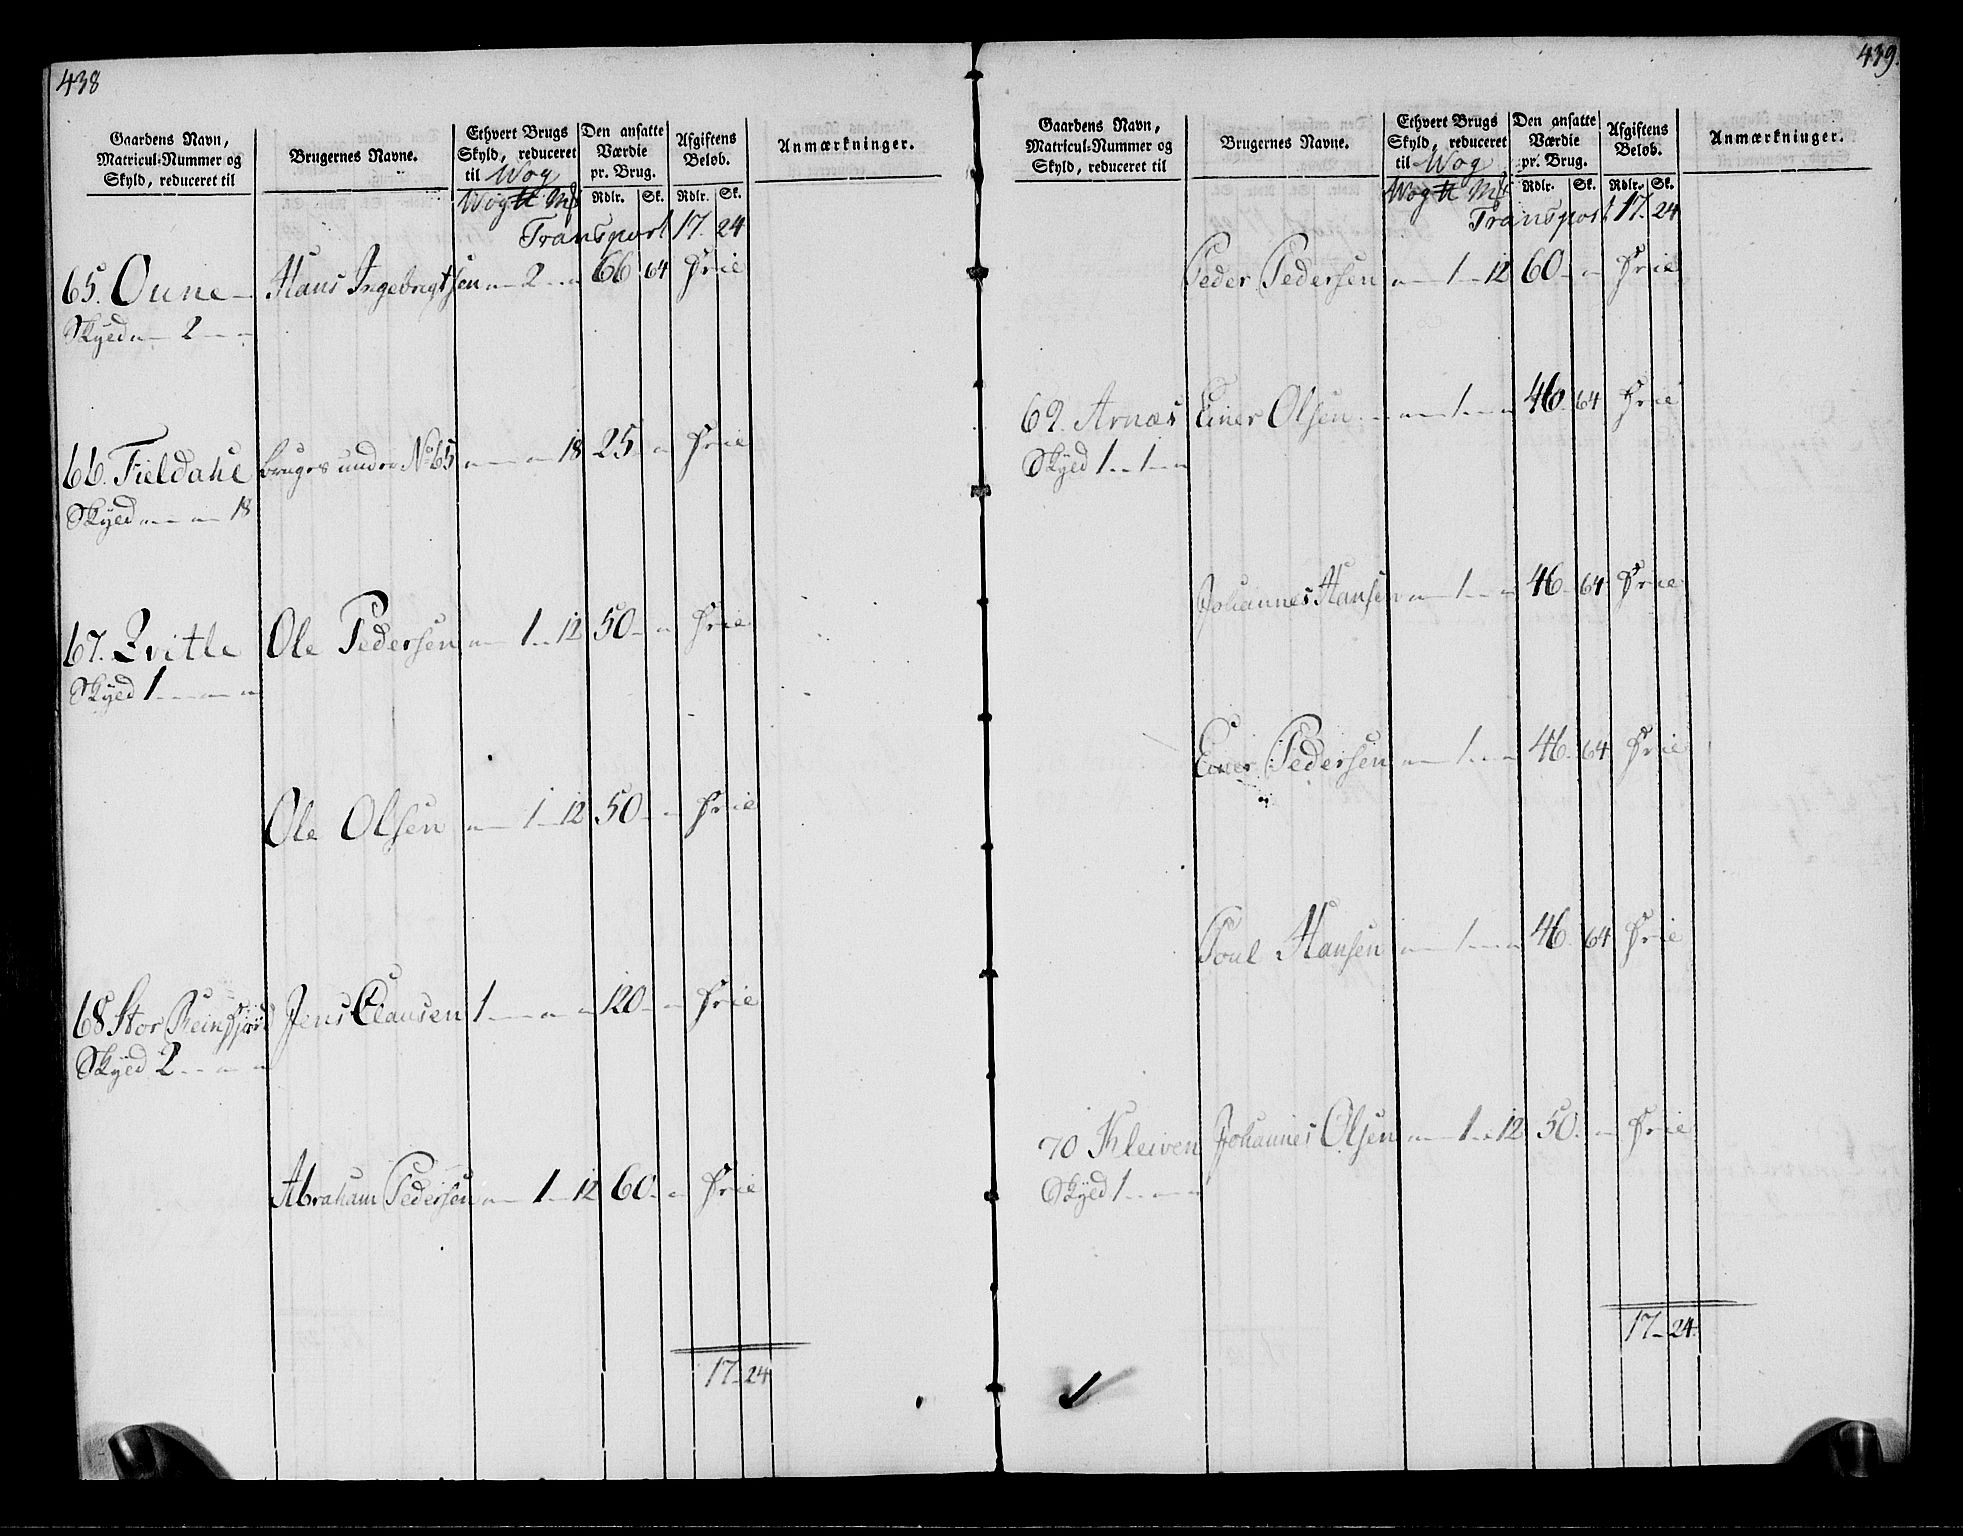 438
Gaardens Navn, Matricul-Nummer og Skyld, reduceret til | Brugernes Navne. | Ethvert Brugs Skyld, reduceret til Wog | Den ansatte Værdie pr. Brug. | Afgiftens Beløb. | Anmærkninger.
Wog | Rdlr. | Sk. | Rdlr. | Sk.
Transport 17. 24
65. Oune Hans Ingebrigtsen 2 66 64 Frie
Skyed 2
66. Fieldahl bruges under No 65 18 25 Frie
Skyed 18
67. Qvitle Ole Pedersen 1 12 50 Frie
Skyed 1
Ole Olsen 1 12 50 Frie
68 Stor Reinsfjord Jens Clausen 1 120 Frie
Skyed 2
Abraham Pedersen 1 12 60 Frie
17 24
439.
Gaardens Navn, Matricul-Nummer og Skyld, reduceret til | Brugernes Navne. | Ethvert Brugs Skyld, reduceret til Wog | Den ansatte Værdie pr. Brug. | Afgiftens Beløb. | Anmærkninger.
Wog | Rdlr. | Sk. | Rdlr. | Sk.
Transport 17. 24
Peder Pedersen 1 12 60 Frie
69. Arnæs Einer Olsen 1 46 64 Frie
Skyed 1 1
Johannes Hansen 1 46 64 Frie
Einer Pedersen 1 46 64 Frie
Poul Hansen 1 46 64 Frie
70 Kleiven Johannes Olsen 1 12 50 Frie
Skyed 1
17 24